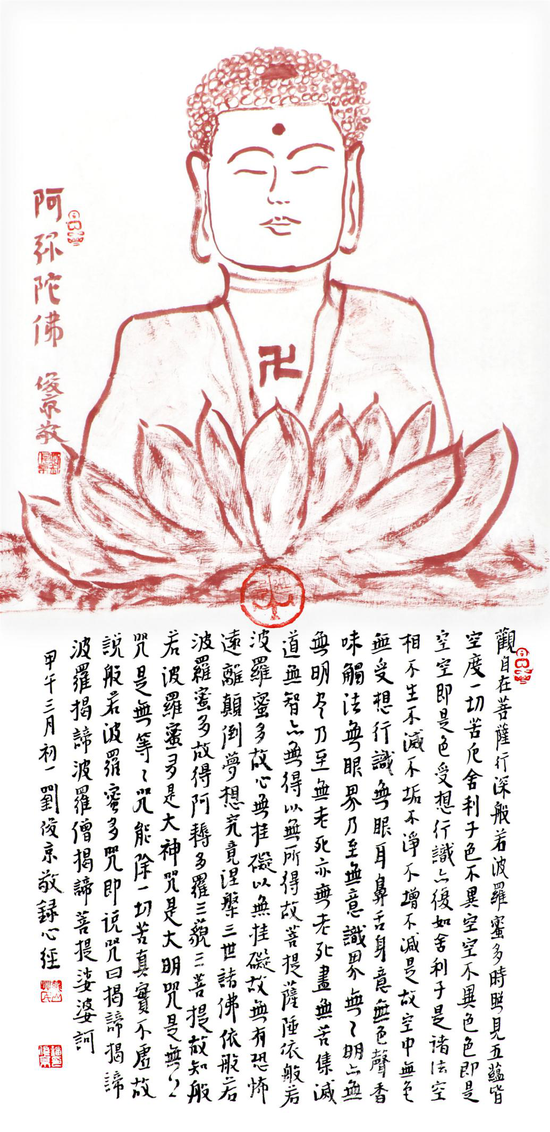 阿彌陀佛
俊京敬
觀自在菩薩行深般若波羅蜜多時照見五蘊皆
空度一切苦厄舍利子色不異空空不異色色即是
空空即是色受想行識亦復如舍利子是諸法空
相不生不滅不垢不淨不增不減是故空中無色
無受想行識無眼耳鼻舌身意無色聲香
味觸法無眼界乃至無意識界無〻明亦無
無明尽乃至無老死亦無老死盡無苦集滅
道無智亦無得以無所得故菩提薩埵依般若
波羅蜜多故心無挂礙以無挂礙故無有恐怖
遠離顛倒夢想究竟涅槃三世諸佛依般若
波羅蜜多故得阿耨多羅三藐三菩提故知般
若波羅蜜多是大神咒是大明咒是無上
咒是無等〻咒能除一切苦真實不虛故
說般若波羅蜜多咒即說咒曰揭諦揭諦
波羅揭諦波羅僧揭諦菩提娑婆訶
甲午三月初一劉俊京敬録心經